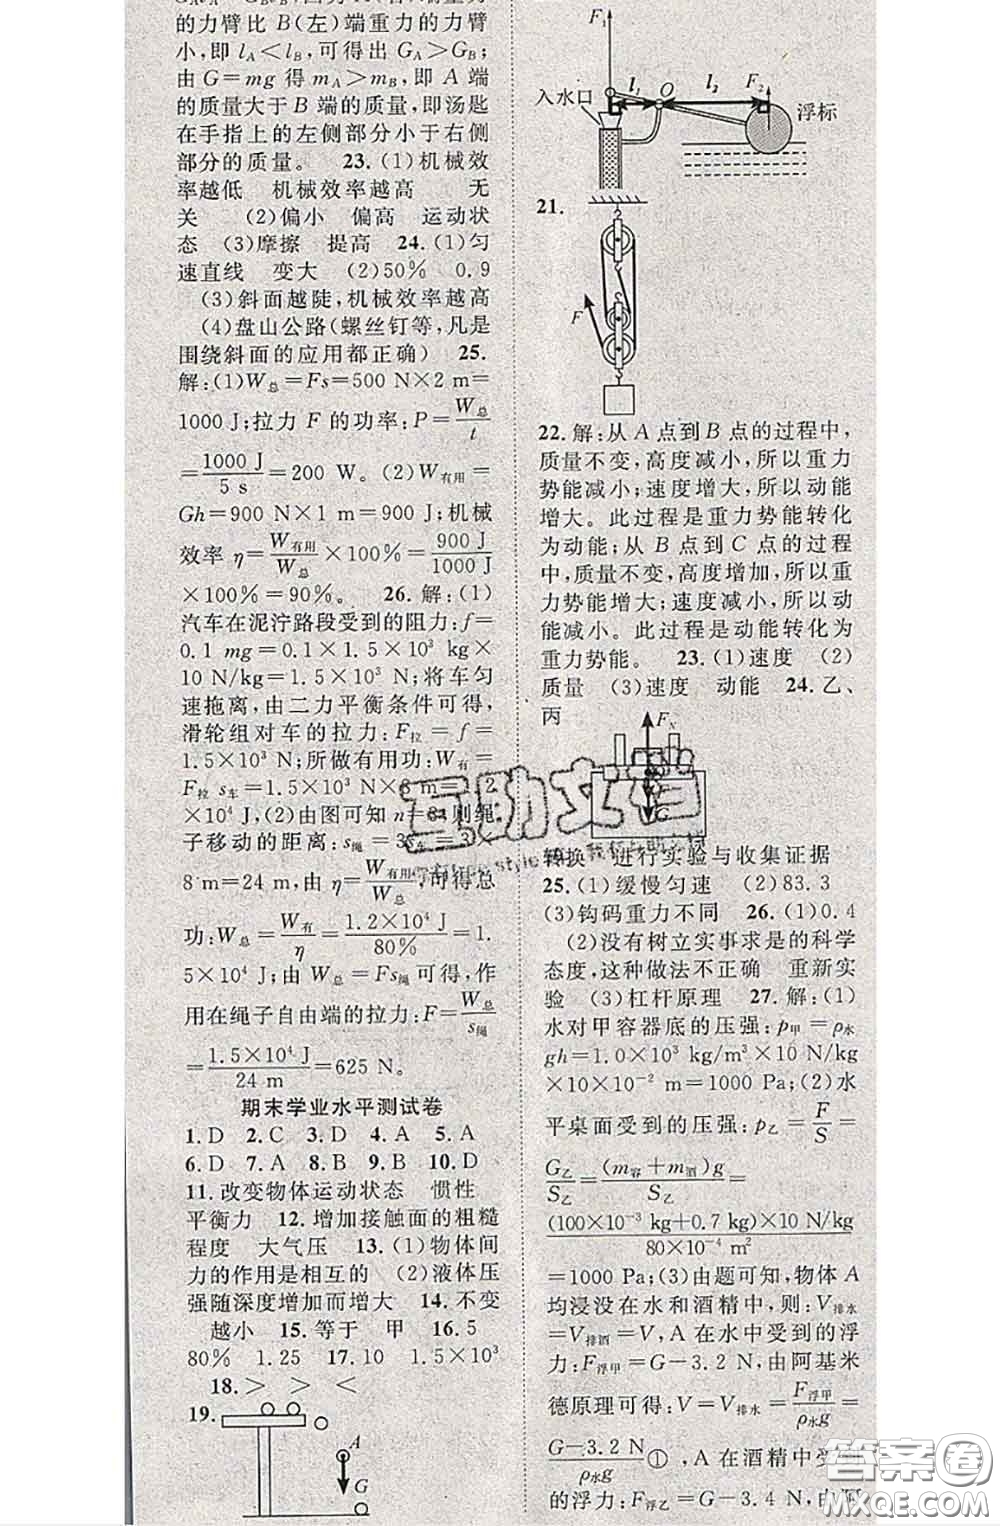 的力臂比 B(左)端重力的力臂
小,即 lA<lB,可得出 GA>GB;
由 G=mg 得 mA>mB,即 A 端
的质量大于 B 端的质量,即汤匙
在手指上的左侧部分小于右侧
部分的质量。 23.(1)机械效
率越低 机械效率越高 无
关 (2)偏小 偏高 运动状
态 (3)摩擦 提高 24.(1)匀
速直线 变大 (2)50% 0.9
(3)斜面越陡,机械效率越高
(4)盘山公路(螺丝钉等,凡是
围绕斜面的应用都正确) 25.
解:(1)W总=Fs=500 N×2 m=
1000 J;拉力 F 的功率:P=W总/t
=1000 J/5 s=200 W。(2)W有用=
Gh=900 N×1 m=900 J;机械
效率 η=W有用/W总×100%=900 J/1000 J
×100%=90%。 26.解:(1)
汽车在泥泞路段受到的阻力:f=
0.1 mg=0.1×1.5×10³ kg×
10 N/kg=1.5×10³ N;将车匀
速拖离,由二力平衡条件可得,
滑轮组对车的拉力:F拉=f=
1.5×10³ N;所做有用功:W有=
F拉 s车=1.5×10³ N×8 m=1.2
×10⁴ J,(2)由图可知 n=3,则绳
子移动的距离:s绳=3s车=3×
8 m=24 m,由 η=W有用/W总,可得总
功:W总=W有/η=1.2×10⁴ J/80%=1.
5×10⁴ J;由 W总=Fs绳可得,作
用在绳子自由端的拉力:F=W总/s绳
=1.5×10⁴ J/24 m=625 N。
期末学业水平测试卷
1.D 2.C 3.D 4.A 5.A
6.D 7.A 8.B 9.B 10.D
11.改变物体运动状态 惯性
平衡力 12.增加接触面的粗糙
程度 大气压 13.(1)物体间
力的作用是相互的 (2)液体压
强随深度增加而增大 14.不变
越小 15.等于 甲 16.5
80% 1.25 17.10 1.5×10³
18.> > <
19.
A
G
F1
l1 O l2 F2
入水口
浮标
21.
F
22.解:从 A 点到 B 点的过程中,
质量不变,高度减小,所以重力
势能减小;速度增大,所以动能
增大。此过程是重力势能转化
为动能;从 B 点到 C 点的过程
中,质量不变,高度增加,所以重
力势能增大;速度减小,所以动
能减小。此过程是动能转化为
重力势能。 23.(1)速度 (2)
质量 (3)速度 动能 24.乙、
丙
FN
G
转换 进行实验与收集证据
25.(1)缓慢匀速 (2)83.3
(3)钩码重力不同 26.(1)0.4
(2)没有树立实事求是的科学
态度,这种做法不正确 重新实
验 (3)杠杆原理 27.解:(1)
水对甲容器底的压强:p甲=ρ水
gh=1.0×10³ kg/m³×10 N/kg
×10×10⁻² m=1000 Pa;(2)水
平桌面受到的压强:p乙=F/S=
G乙/S乙=(m容+m酒)g/S乙=
(100×10⁻³ kg+0.7 kg)×10 N/kg/80×10⁻⁴ m²
=1000 Pa;(3)由题可知,物体 A
均浸没在水和酒精中,则:V排水
=V排酒=V,A 在水中受到的浮
力:F浮甲=G-3.2 N,由阿基米
德原理可得:V=V排水=F浮甲/ρ水g=
G-3.2 N/ρ水g①,A 在酒精中受到
的浮力:F浮乙=G-3.4 N,由阿
互助文档
答案圈
MXQE.COM